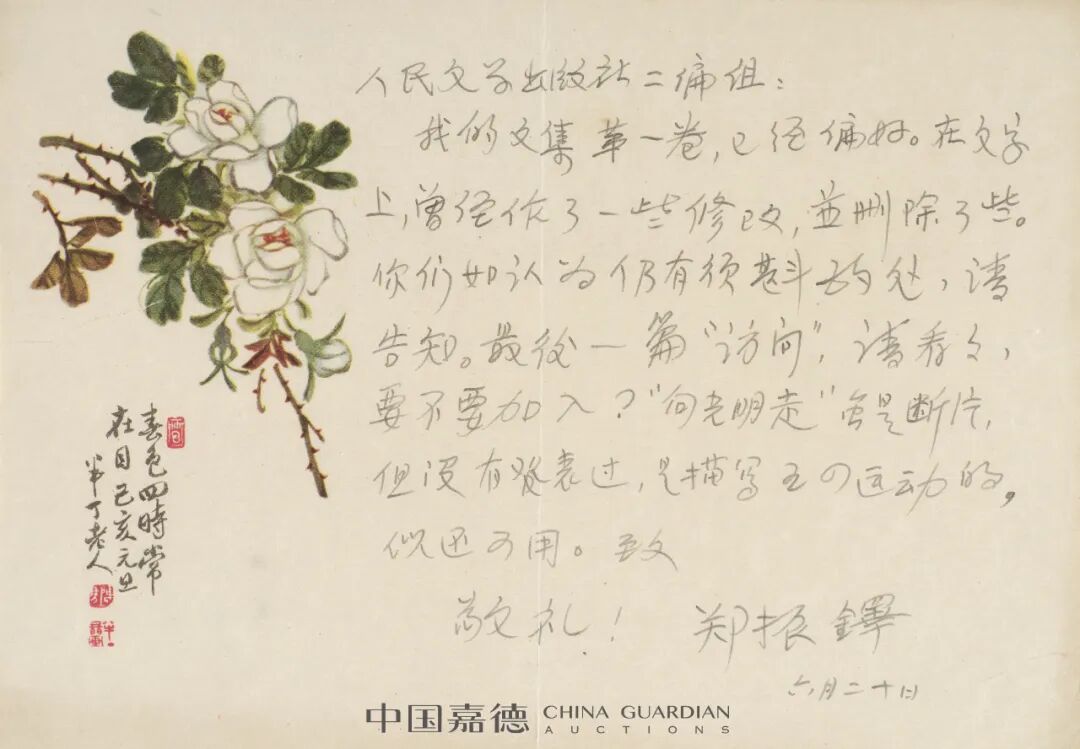 人民文学出版社二编组：
我的文集第一卷，已经编好。在文字
上，曾经作了一些修改，並删除了些。
你们如认为仍有须斟酌处，请
告知。最后一篇“访问”，请看看，
要不要加入？“向光明走”虽是断片，
但没有发表过，是描写五四运动的，
似还可用。致
敬礼！
郑振铎
六月二十日
春色四時常
在目己亥元旦
半丁老人
中国嘉德 CHINA GUARDIAN
AUCTIONS